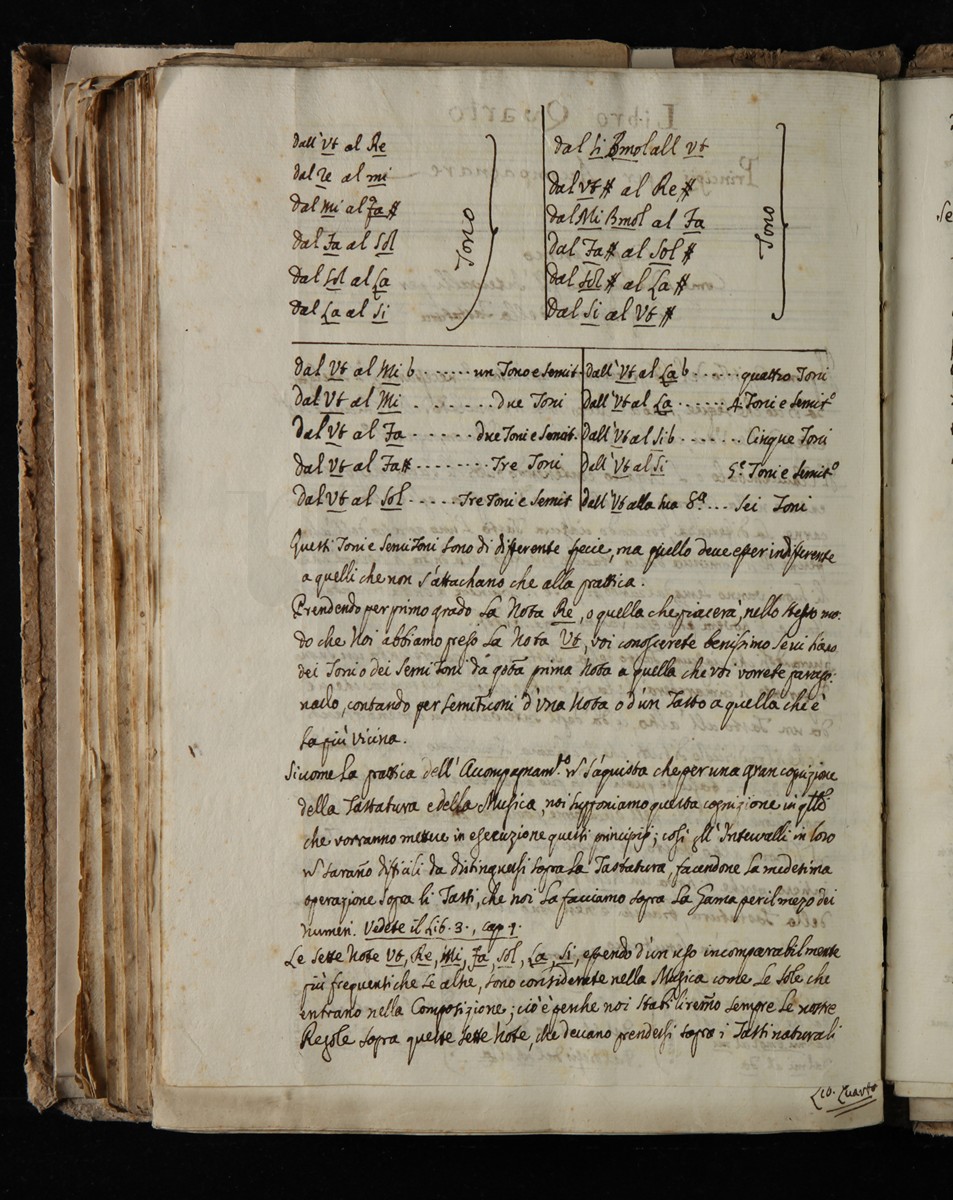 dall' Vt al Re
dal re al mi
dal mi al Fa #
dal Fa al Sol
dal Sol al La
dal La al Si
Tono
dal Si Bmol all Vt
dal Vt # al Re #
dal Mi Bmol al Fa
dal Fa # al Sol #
dal Sol # al La #
dal Si al Vt #
Tono
dal Vt al Mi b ...... un Tono e Semit.
dal Vt al Mi ....... due Toni
dal Vt al Fa ...... due Toni e Semit.
dal Vt al Fa# ........ Tre Toni
dal Vt al Sol ..... Tre Toni e Semit
dall' Vt al La b ...... quattro Toni
dall' Vt al La ...... 4. Toni e Semit.º
dall' Vt al Si b ....... Cinque Toni
dall' Vt al Si 5.e Toni e Semit.º
dall' Vt alla sua 8.ª ... Sei Toni
Questi Toni e Semitoni sono di differente specie, ma quello deve esser indifferente
a quelli che non s'attachano che alla prattica.
Prendendo per primo grado La Nota Re, o quella che piacerà, nello stesso mo-
do che Noi abbiamo preso La Nota Vt, voi conoscerete benissimo se vi siano
dei Toni o dei Semitoni da qsta prima Nota a quella che voi vorrete parago-
narlo, contando per Semituoni d'vna Nota o d'un Tasto a quella che è
La più vicina.
Siccome La prattica dell' Accompagnam.to s'aquista che per una gran cognizione
della Tastatura e della Musica, noi supponiamo questa cognizione in qlli
che vorranno mettere in esecuzione questi principij; così gl' Intervalli in loro
saranno difficili da distinguersi sopra La Tastatura, facendone La medesima
operazione sopra li Tasti, che noi La facciamo sopra La Gama per il mezo dei
numeri. Vedete il Lib. 3., cap 9.
Le sette Note Vt, Re, Mi, Fa, Sol, La, Si, essendo d'un uso incomparabilmente
più frequenti che Le altre, sono considerate nella Musica come Le sole che
entrano nella Composizione; ciò è perche noi stabiliremo sempre Le nostre
Regole sopra queste sette Note, che devano prendersi sopra i Tasti naturali
Lib. Quarto